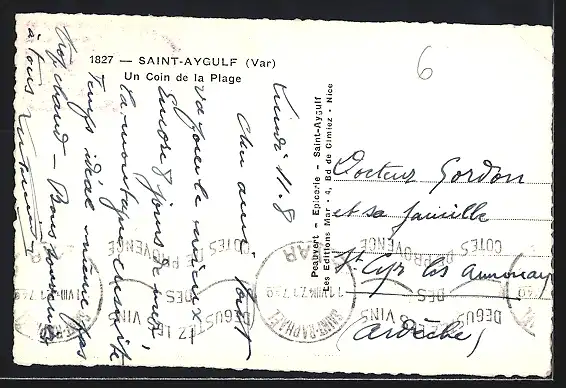 1827 — SAINT-AYGULF (Var)
Un Coin de la Plage
6
Lundi 11.8
Cher ami
va pour le mieux
Encore 8 jours de mer,
la montagne ensuite
Temps idéal même pas
trop chaud — Bons souvenirs
à tous
Peauvert - Epicerie - Saint-Aygulf
Les Editions Mar - 4, Bd de Cimiez - Nice
Docteur Gordon
et sa famille
St Cyr les Annonay
(Ardèche)
SAINT-RAPHAEL
VAR
DEGUSTEZ LES VINS
DES
COTES DE PROVENCE